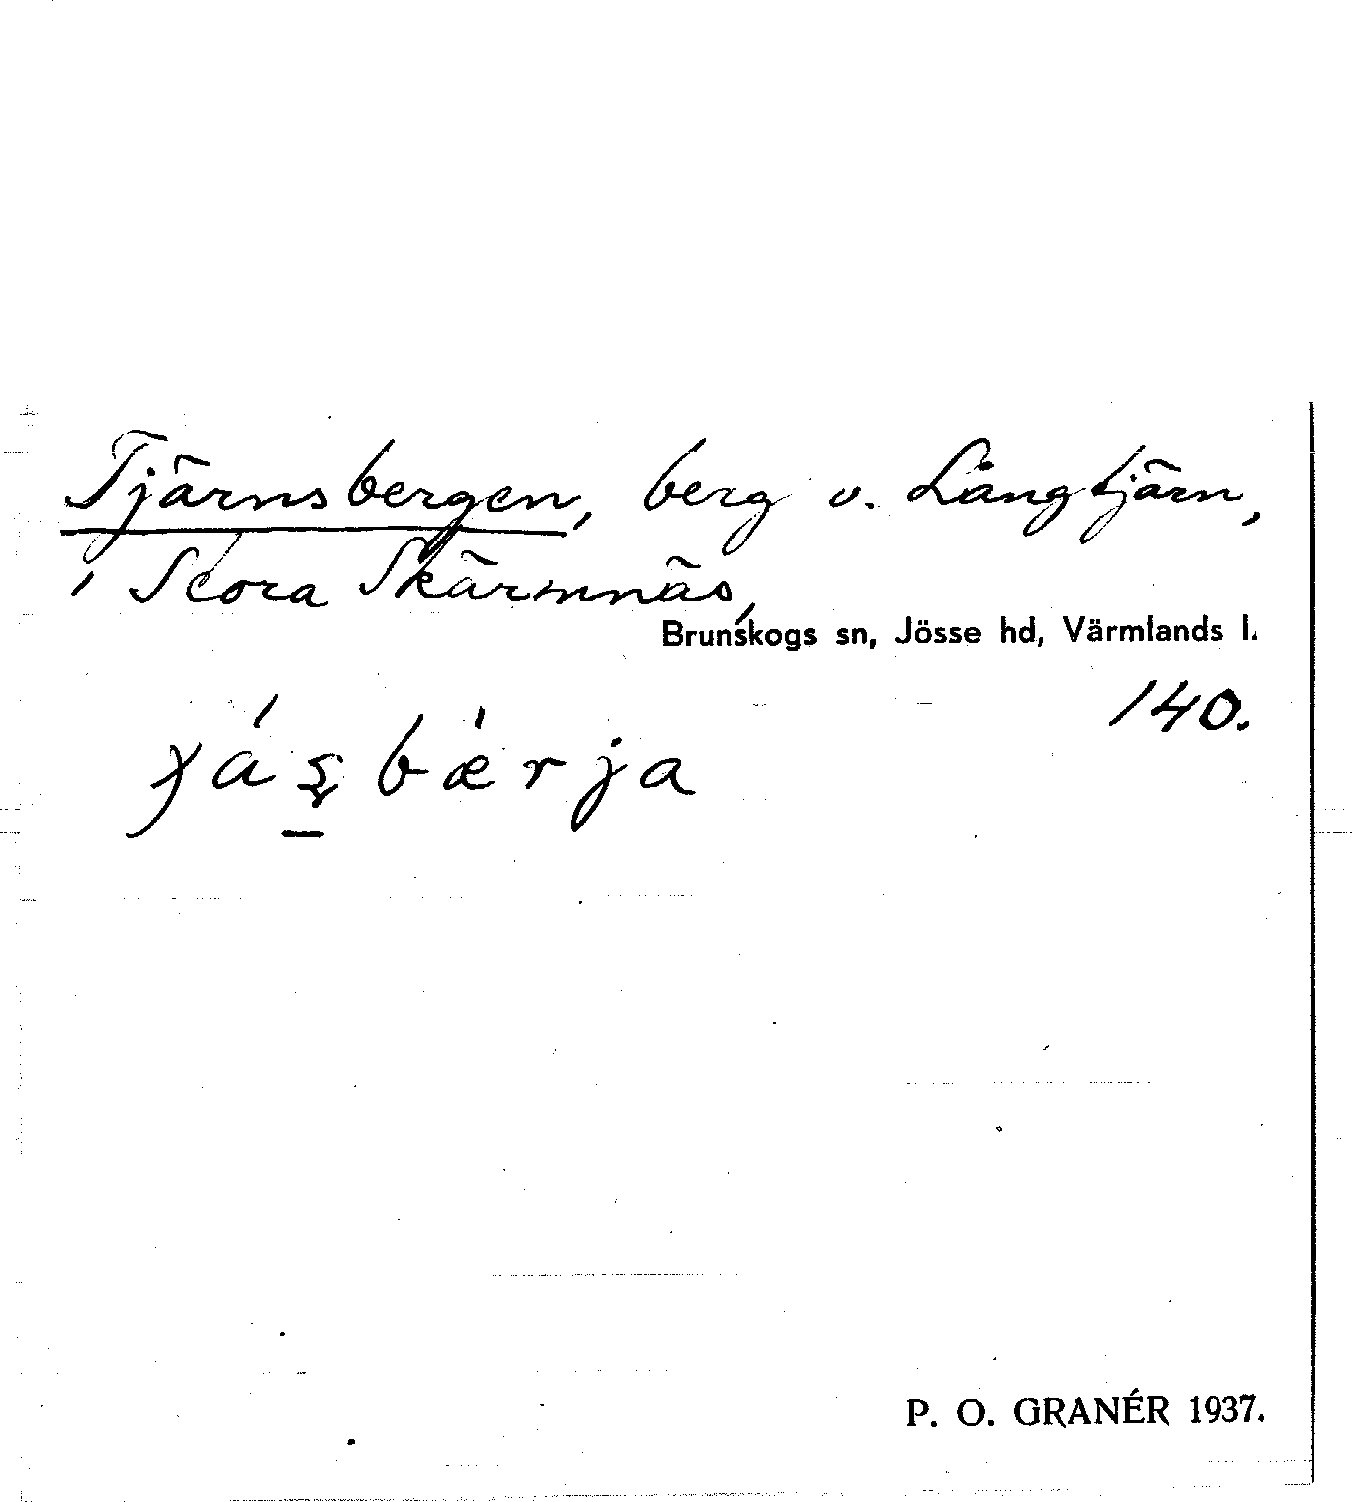 Tjärnsbergen, berg v. Långtjärn,
i Stora Skärmnäs,
Brunskogs sn, Jösse hd, Värmlands l.
140.
P. O. GRANÉR 1937.